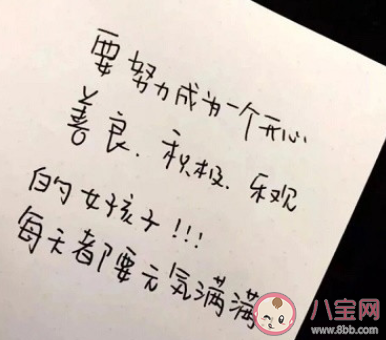 要努力成为一个开心
善良、积极、乐观
的女孩子!!!
每天都要元気满满
八宝网
www.8bb.com